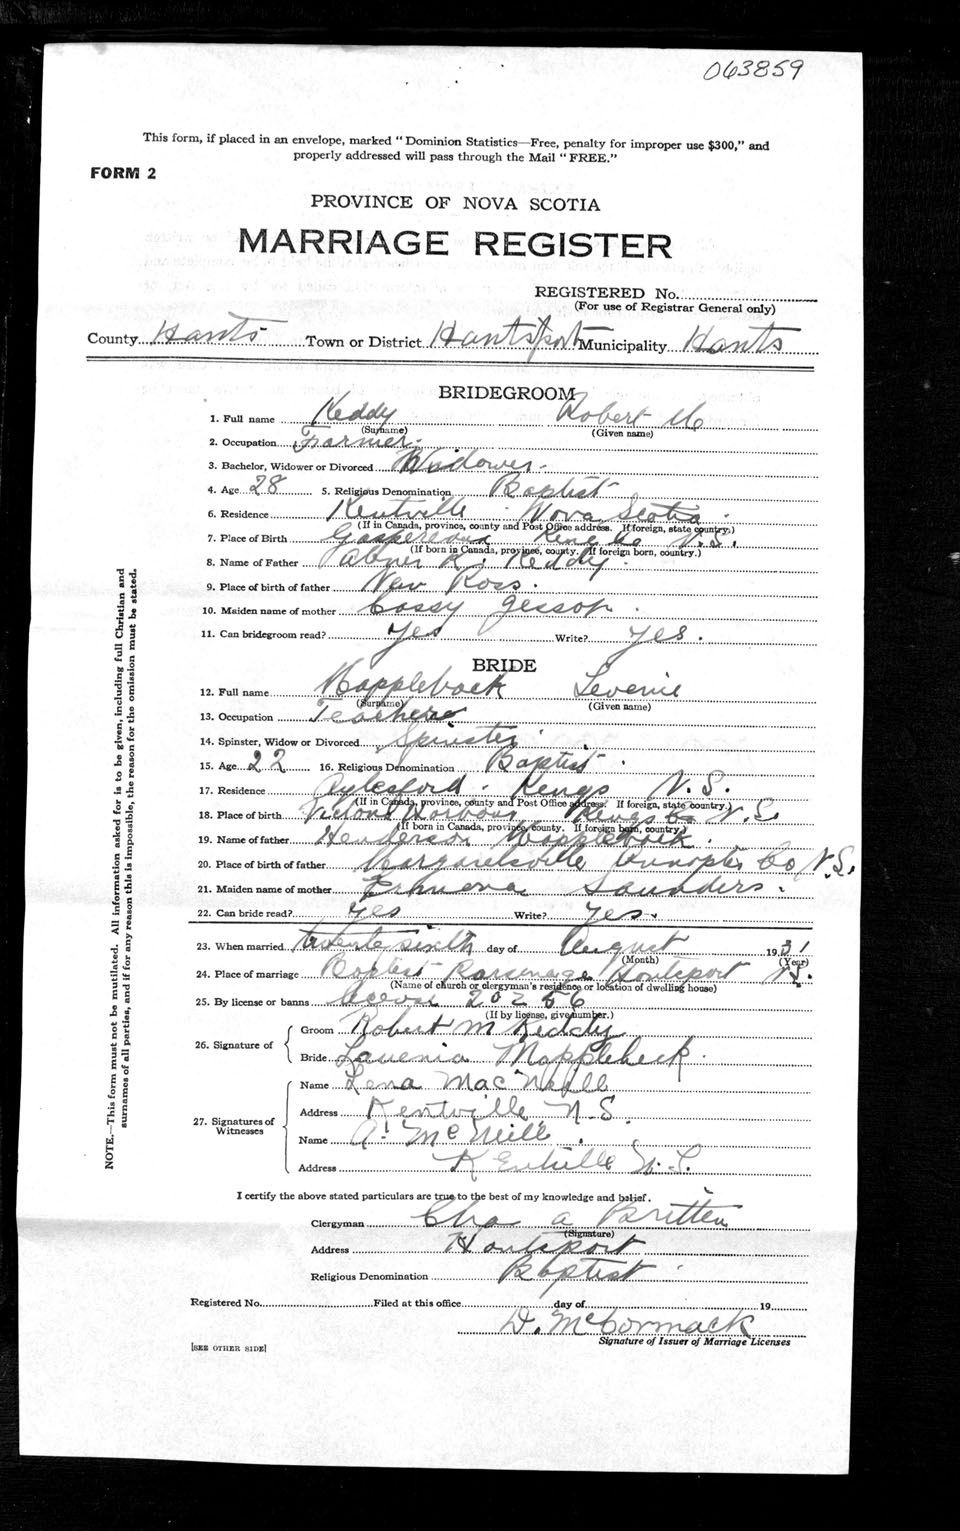 063859
This form, if placed in an envelope, marked "Dominion Statistics—Free, penalty for improper use $300," and
properly addressed will pass through the Mail "FREE."
FORM 2
PROVINCE OF NOVA SCOTIA
MARRIAGE REGISTER
REGISTERED No.
(For use of Registrar General only)
County Hants Town or District Hantsport Municipality Hants
BRIDEGROOM
1. Full name Keddy Robert M
(Surname) (Given name)
2. Occupation Farmer
3. Bachelor, Widower or Divorced Widower
4. Age 28 5. Religious Denomination Baptist
6. Residence Kentville Nova Scotia
(If in Canada, province, county and Post Office address. If foreign, state country.)
7. Place of Birth Gaspereaux Kings Co N.S.
(If born in Canada, province, county. If foreign born, country.)
8. Name of Father Abner Keddy
9. Place of birth of father New Ross.
10. Maiden name of mother Cassy Jessop.
11. Can bridegroom read? Yes Write? Yes.
BRIDE
12. Full name Mapplebeck Levenie
(Surname) (Given name)
13. Occupation Teacher
14. Spinster, Widow or Divorced Spinster
15. Age 22 16. Religious Denomination Baptist.
17. Residence Aylesford. Kings N.S.
(If in Canada, province, county and Post Office address. If foreign, state country.)
18. Place of birth Harbour Kings Co N.S.
(If born in Canada, province, county. If foreign born, country.)
19. Name of father Henderson Mapplebeck.
20. Place of birth of father Margaretsville Annapolis Co N.S.
21. Maiden name of mother Saunders.
22. Can bride read? Yes Write? Yes.
23. When married twenty sixth day of August 1931
(Month) (Year)
24. Place of marriage Baptist Parsonage Hantsport N.S.
(Name of church or clergyman's residence or location of dwelling house)
25. By license or banns license 20256
(If by license, give number.)
26. Signature of
Groom Robert M Keddy
Bride Lavenia Mapplebeck.
27. Signatures of
Witnesses
Name Lena MacNeill
Address Kentville N.S.
Name A. McNeill.
Address Kentville N.S.
I certify the above stated particulars are true to the best of my knowledge and belief.
Clergyman Chas a Britten
(Signature)
Address Hantsport
Religious Denomination Baptist
Registered No. Filed at this office day of 19
D. McCormack
Signature of Issuer of Marriage Licenses
[SEE OTHER SIDE]
NOTE.—This form must not be mutilated. All information asked for is to be given, including full Christian and
surnames of all parties, and if for any reason this is impossible, the reason for the omission must be stated.